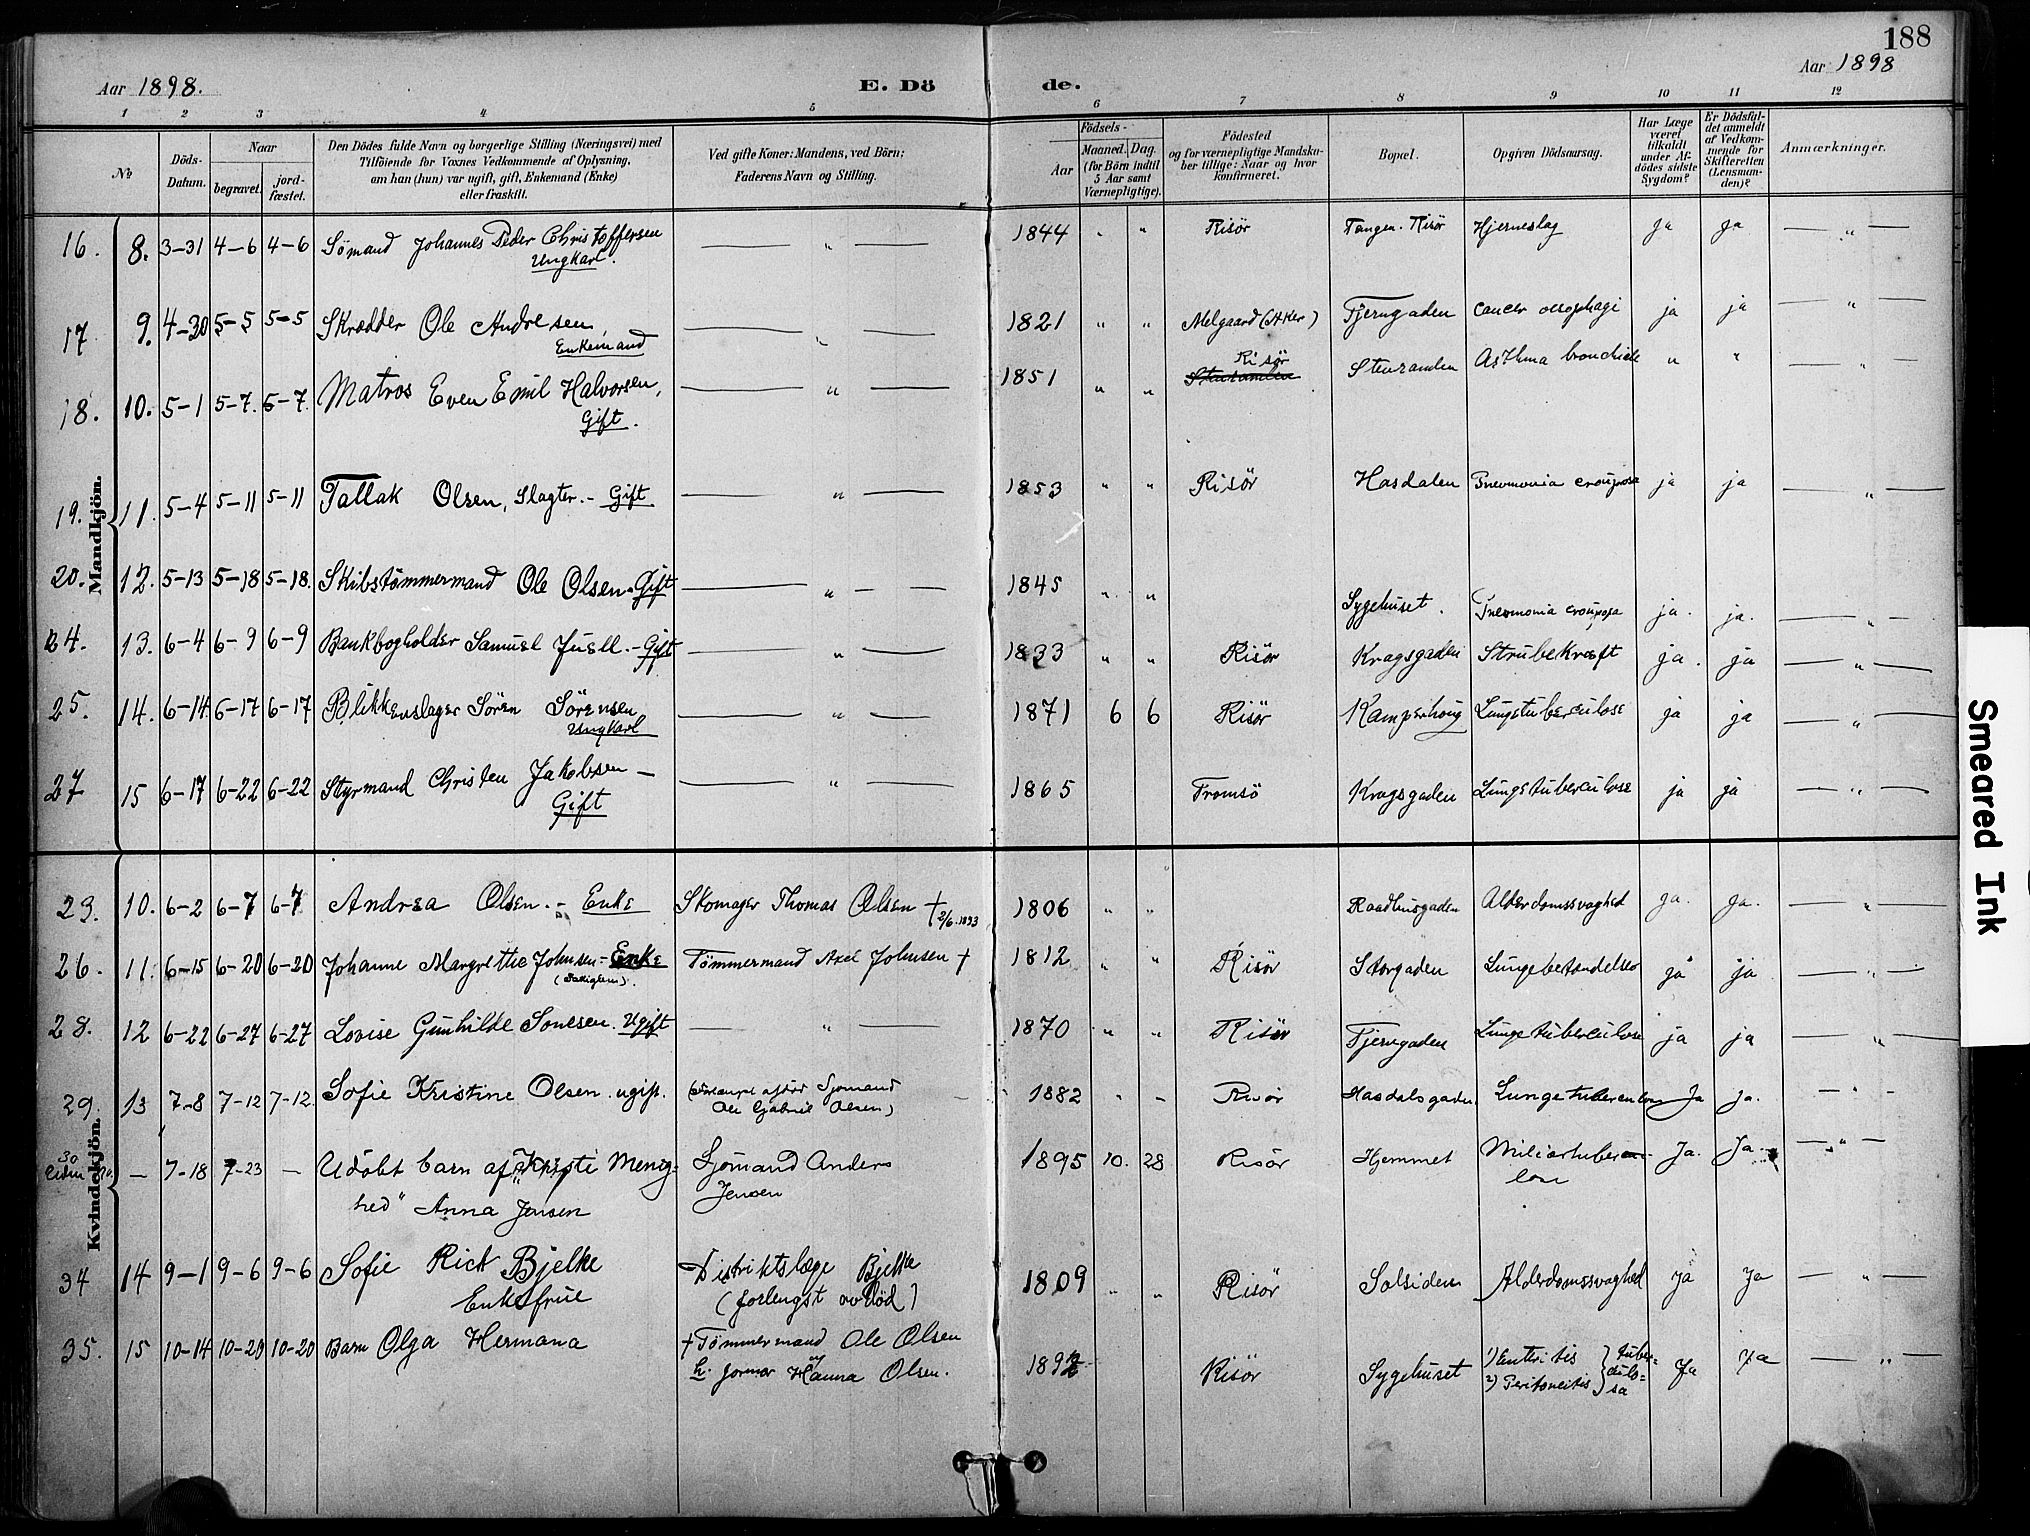 188
Aar 1898.
E. Dö
de.
Aar 1898
1 2 3 4 5 6 7 8 9 10 11 12
№
Döds-
Datum.
Naar
begravet.
jord-
fæstet.
Den Dödes fulde Navn og borgerlige Stilling (Næringsvei) med
Tilföiende for Voxnes Vedkommende af Oplysning,
om han (hun) var ugift, gift, Enkemand (Enke)
eller fraskilt.
Ved gifte Koner: Mandens, ved Börn:
Faderens Navn og Stilling.
Födsels-
Aar
Maaned. Dag.
(for Börn indtil
5 Aar samt
Værnepligtige).
Födested
og for værnepligtige Mandska-
ber tillige: Naar og hvor
konfirmeret.
Bopæl.
Opgiven Dödsaarsag.
Har Læge
været
tilkaldt
under Af-
dödes sidste
Sygdom?
Er Dödsfal-
det anmeldt
af Vedkom-
mende for
Skifteretten
(Lensman-
den)?
Anmærkninger.
Mandkjön.
16. 8. 3-31 4-6 4-6 Sömand Johannes Peder Christoffersen — „ — 1844 „ „ Risör Tangen. Risör Hjerneslag ja ja — „ —
Ungkarl.
17 9. 4-30 5-5 5-5 Skrædder Ole Andresen, — „ — 1821 „ „ Melgaard (Aker) Tjerngaden cancer oesophagi ja ja — „ —
Enkemand
Risör
18. 10. 5-1 5-7. 5-7. Matros Even Emil Halvorsen, — „ — 1851 „ „ Stenranden Stenranden Asthma bronchiale „ „ — „ —
Gift.
19. 11. 5-4 5-11 5-11 Tallak Olsen, Slagter. - Gift — „ — 1853 „ „ Risör Hasdalen Pneumonia crouposa ja ja — „ —
20. 12. 5-13 5-18 5-18. Skibstömmermand Ole Olsen. Gift — „ — 1845 „ „ Sygehuset. Pneumonia crouposa ja. ja. — „ —
24. 13. 6-4 6-9 6-9 Bankbogholder Samuel Juell. - Gift — „ — 1833 „ „ Risör Kragsgaden Strubekræft ja. ja — „ —
25. 14. 6-14 6-17 6-17 Blikkenslager Sören Sörensen — „ — 1871 6 6 Risör Kamperhoug Lungetuberculose ja ja — „ —
Ungkarl
27 15 6-17 6-22 6-22 Styrmand Christen Jakobsen — — „ — 1865 Tromsö Kragsgaden Lungetuberculose ja ja — „ —
Gift
Kvindekjön.
23. 10. 6-2 6-7 6-7 Andrea Olsen. - Enke Skomager Thomas Olsen † 2/6. 1893 1806 „ „ Raadhusgaden Alderdomssvaghed ja. ja. — „ —
26. 11. 6-15 6-20 6-20 Johanne Margrethe Johnsen - Enke Tömmermand Axel Johnsen † 1812 „ „ Risör Storgaden Lungebetændelse ja ja — „ —
28. 12 6-22 6-27 6-27 Lovise Gunhilde Sonesen. Ugift — „ — 1870 „ „ Risör Tjerngaden Lungetuberculose ja ja — „ —
29. 13 7-8 7-12 7-12. Sofie Kristine Olsen. ugift. Sjömand 1882 „ - Risör Hasdalsgaden Lungetuberculose Ja ja. — „ —
Ole Gabriel Olsen)
30
— 7-18 7-23 — Udöbt barn af „Kristi Menig- Sjömand Anders 1895 10. 28 Risör Hjemmet Miliærtubercu- Ja. Ja. — „ —
hed" Anna Jensen Jensen lose
34 14 9-1 9-6 9-6 Sofie Rick Bjelke Distriktslæge Bjelke 1809 „ „ Risör Solsiden Alderdomssvaghed Ja Ja — „ —
Enkefrue (forlengst avdöd)
35. 15 10-14 10-20 10-20 Barn Olga Hermana † Tömmermand Ole Olsen 1892 Risör Sygehuset 1) Enteritis } tuber- Ja Ja — „ —
h. Hanna Olsen. 2) Peritoneitis } culo-
sa
Smeared Ink